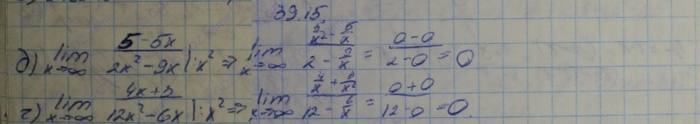 39.15.
д) lim x→∞ (5-5x)/(2x²-9x) |:x² ⇒ lim x→∞ (5/x² - 5/x)/(2 - 9/x) = (0-0)/(2-0) = 0
г) lim x→∞ (4x+5)/(12x²-6x) |:x² ⇒ lim x→∞ /(12 - 6/x) = (0+0)/(12-0) = 0.